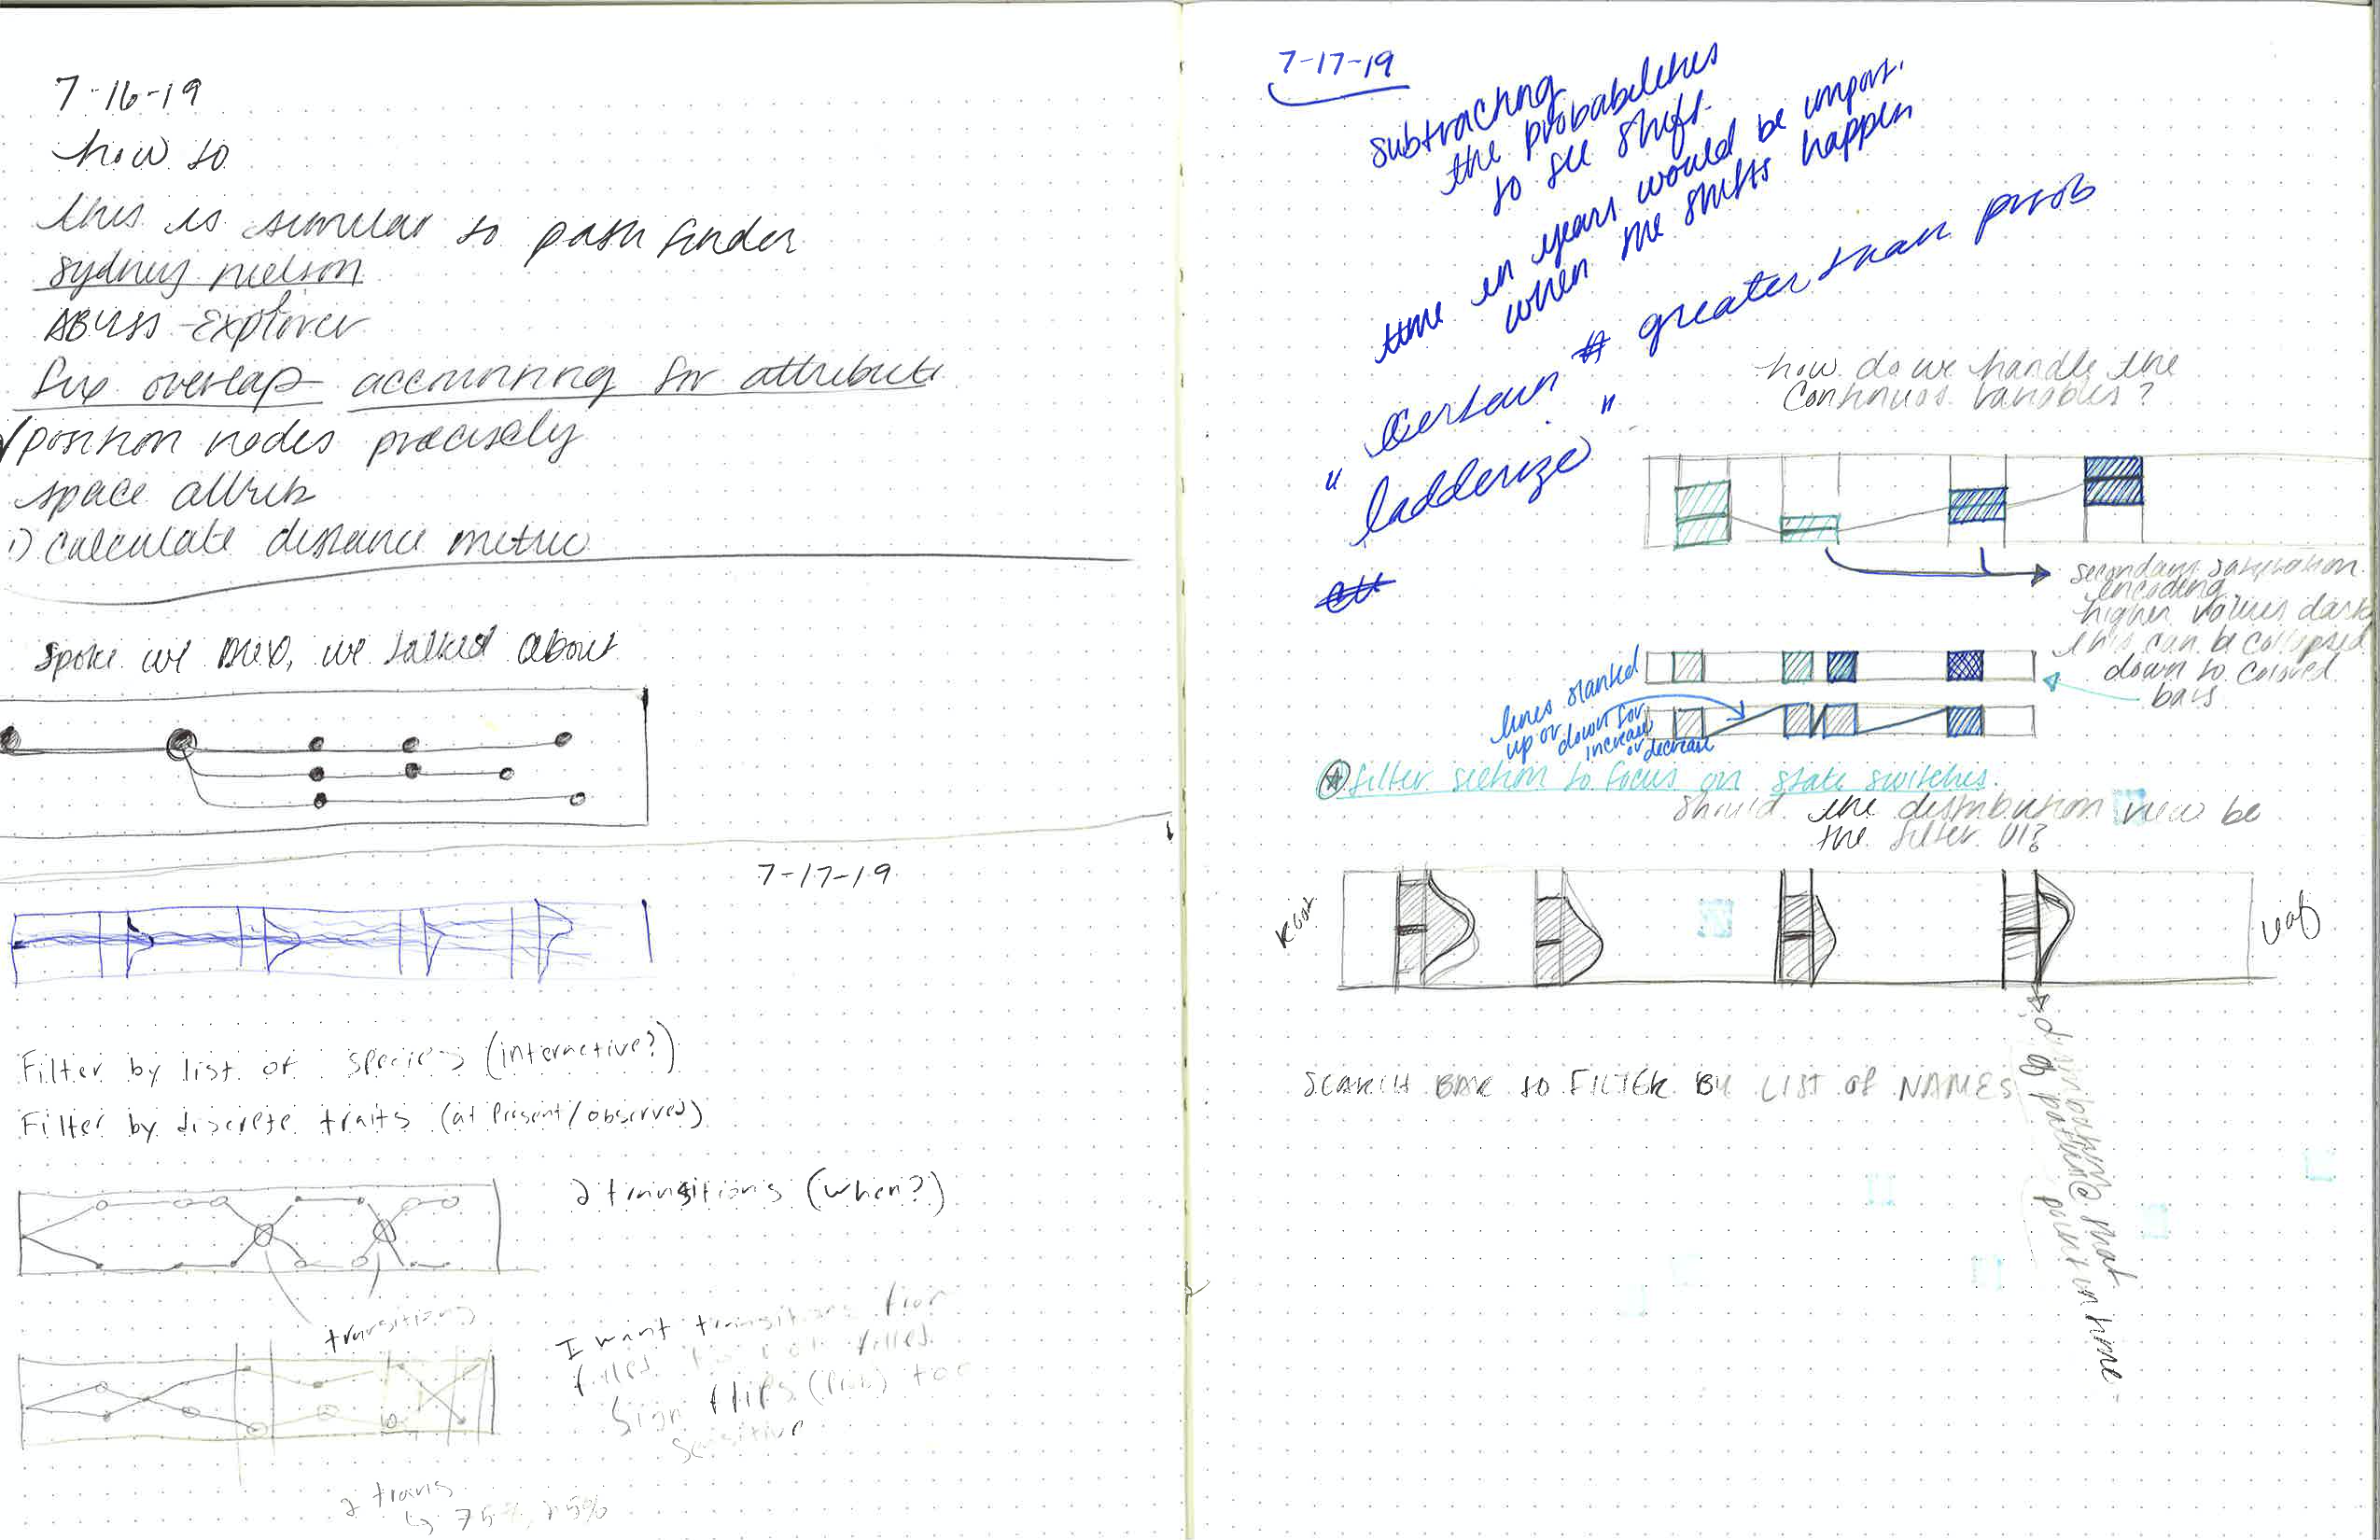 7-16-19
how to
this is similar to path finder
sydney nielson
ABYSS-Explorer
fix overlap accounting for attribute
position nodes precisely
space attrib
1) calculate distance metric
Spoke w/ we talked about
7-17-19
Filter by list of species (interactive?)
Filter by discrete traits (at present/observed)
2 transitions (when?)
transitions
I want transitions from
filled to not filled
Sign flips (prob) too
sensitive
2 trans
↳ 75%, 25%
7-17-19
subtracting
the probabilities
to see shift.
time in years would be import.
when the shifts happen
"certain # greater than prob
ladderize"
how do we handle the
continuos variables?
secondary saturation
encoding
higher values dark
this can be collapsed
down to colored
bars
lines slanted
up or down for
increase
or decrease
filter section to focus on state switches.
should the distribution view be
the filter UI?
Root
leaf
distribution
of paths @ that
point in time
SEARCH BAR to FILTER BY LIST of NAMES